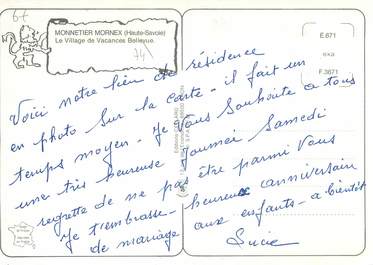 67
MONNETIER MORNEX (Haute-Savoie)
Le Village de Vacances Bellevue.
74
E.671
exa
F.3671
Voici notre lieu de résidence
en photo sur la carte - il fait un
temps moyen - je vous souhaite a tous
une très heureuse journée Samedi
regrette de ne pas être parmi vous
je t'embrasse - heureux anniversaire
de mariage aux enfants - a bientôt
Lucie